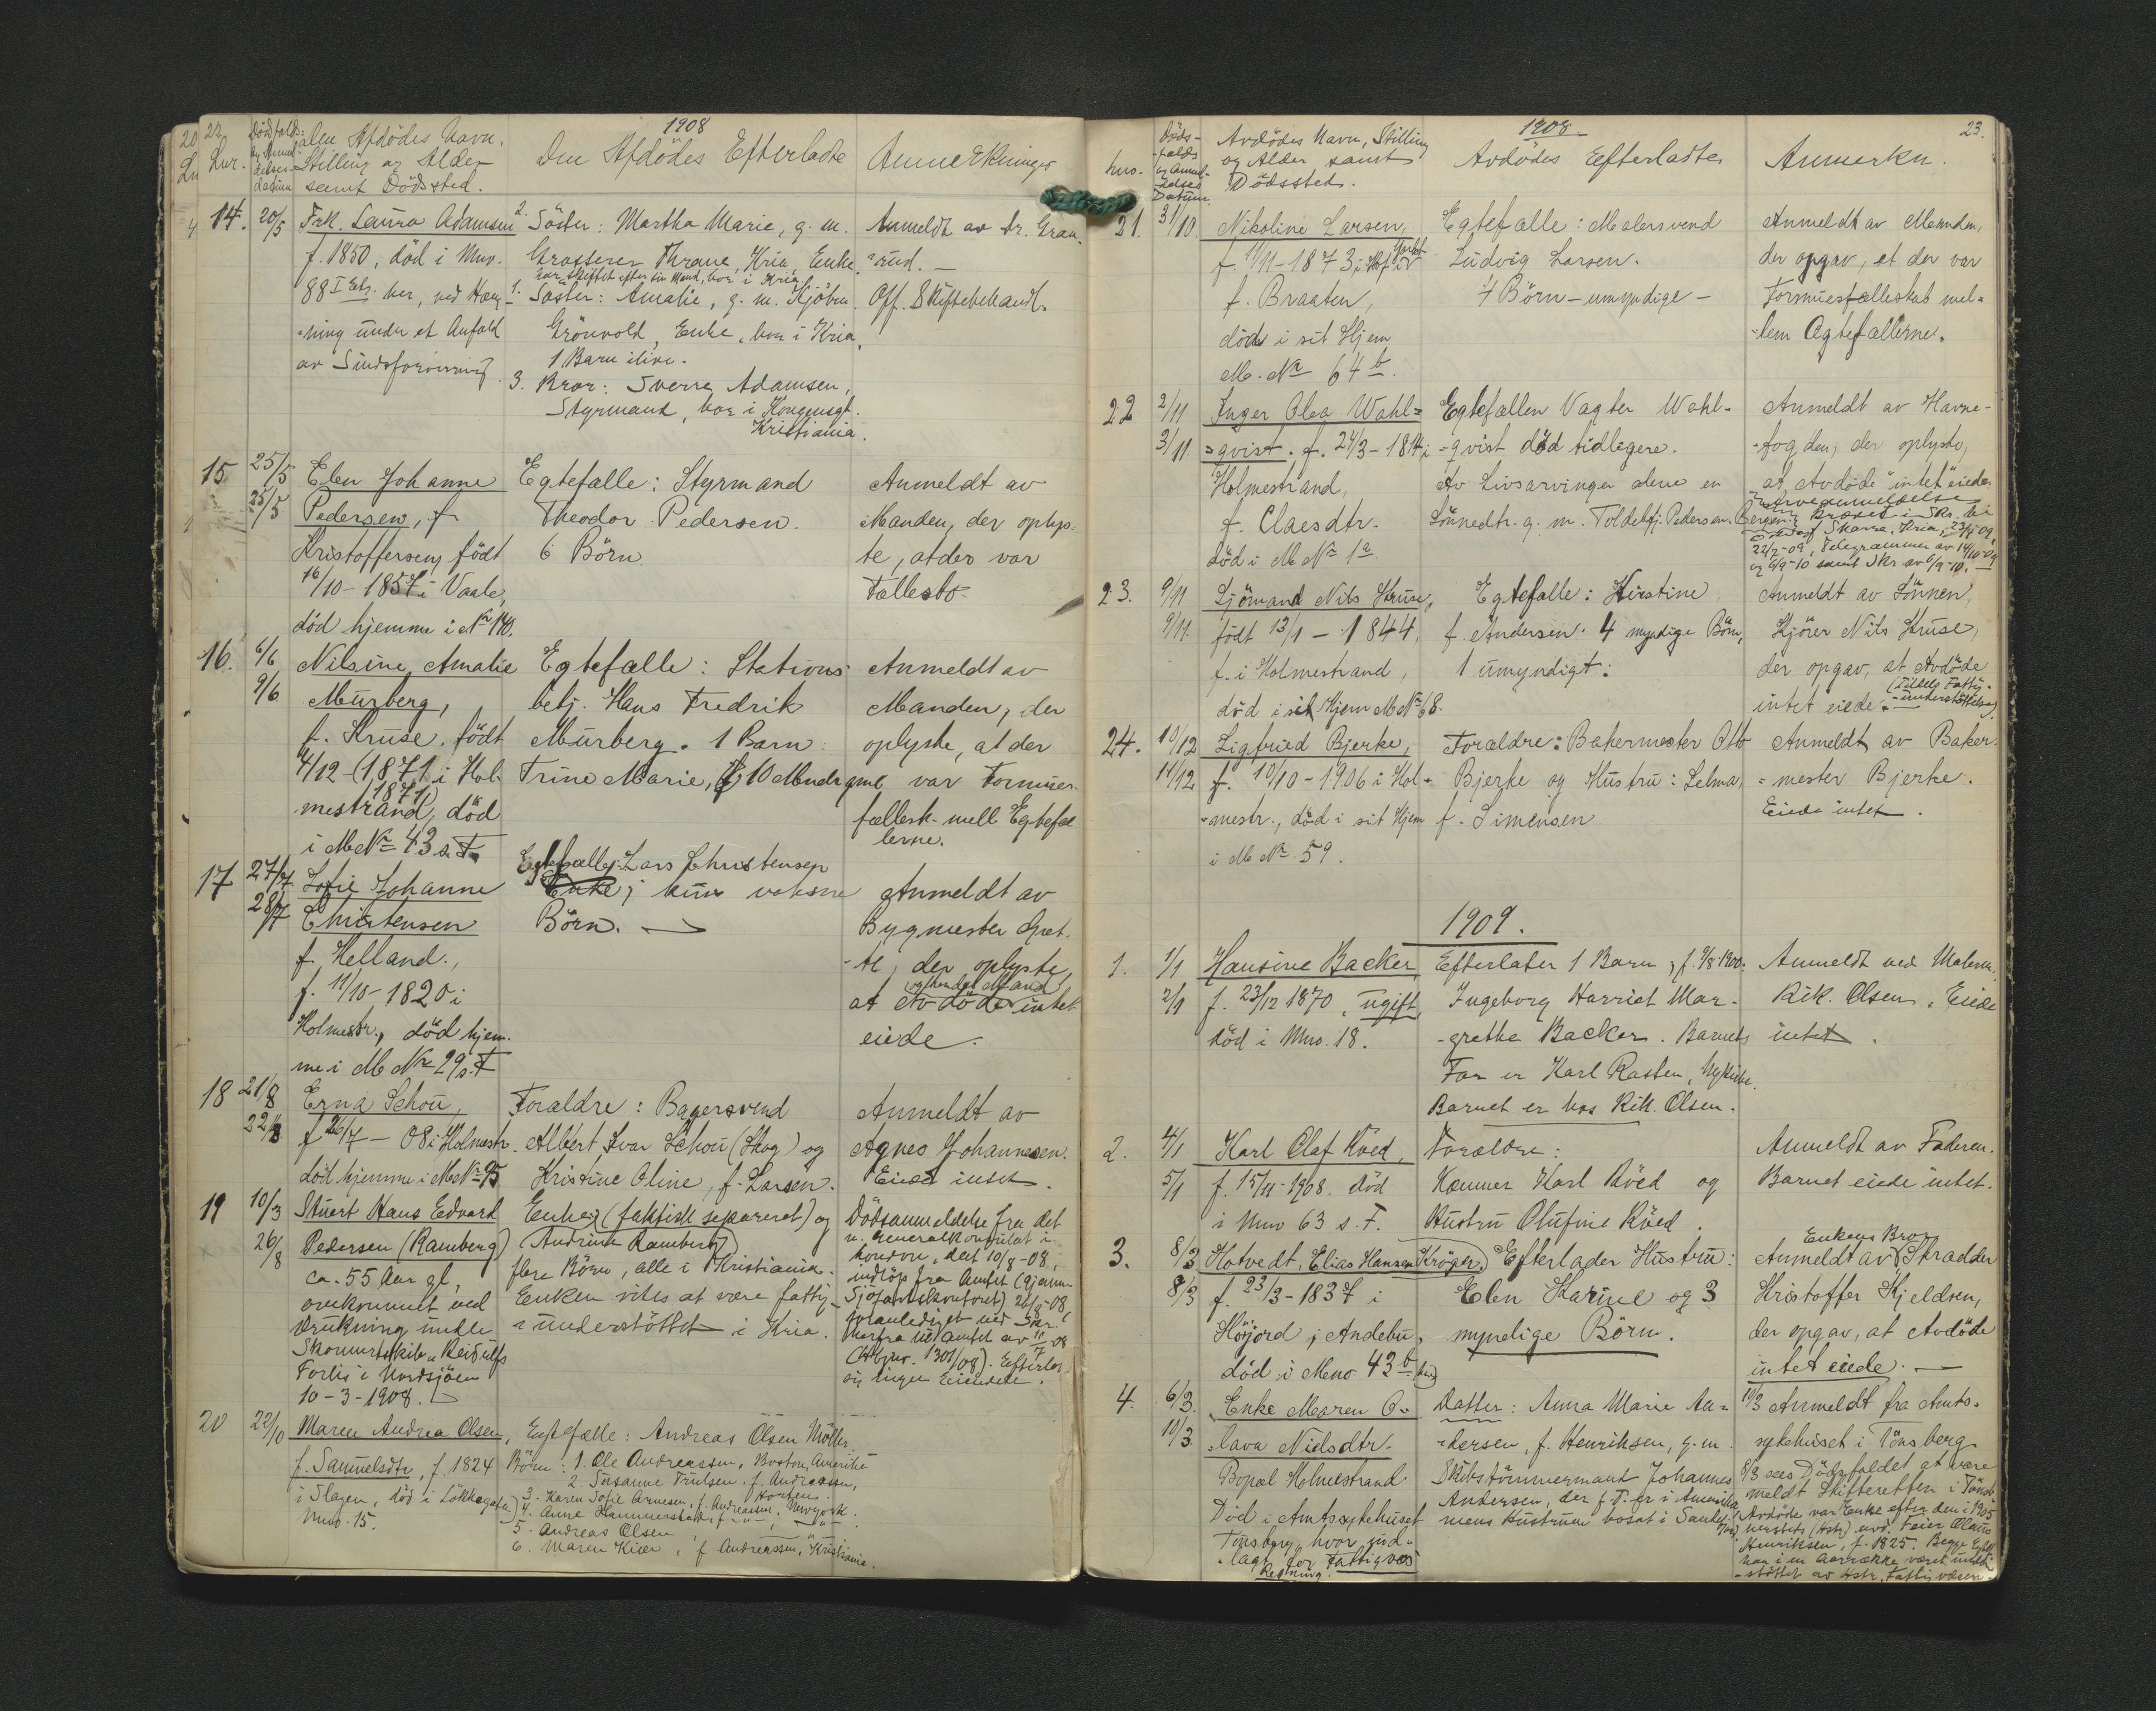 22.
1908
Lnr.
Dödsfalds- og Anmeldelses-datum
den Afdödes Navn,
Stilling og Alder
samt Dödssted.
Den Afdödes Efterladte
Anmerkninger
14. 20/5 Frk. Laura Adamsen
f. 1850, död i Mno.
88 I Etg. her, ved Hæng-
-ning under et Anfald
av Sindsforvirring.
2. Söster: Martha Marie, g. m.
Grosserer Thrane, Kria, Enke.
har skiftet efter sin Mand, bor i Kria
1. Söster: Amalie, g. m. Kjöbm.
Grönvold, Enke, bor i Kria,
1 Barn ilive.
3. Bror: Sverre Adamsen,
Styrmand, bor i Kongensgt.
Kristiania.
Anmeldt av Dr. Gran-
-rud. —
Off. Skiftebehandl.
15 25/5 Elen Johanne
25/5 Pedersen, f.
Kristoffersen, födt
16/10 - 1857 i Vaale,
död hjemme i No 140.
Egtefælle: Styrmand
Theodor Pedersen.
6 Börn.
Anmeldt av
Manden, der oplys-
te, at der var
Fællesbo
16. 6/6 Nilsine Amalie
9/6 Murberg,
f. Kruse, födt
4/12 - (1871 i Hol-
1871)
mestrand, död
i M No 43 s. T.
Egtefælle: Stations-
betj. Hans Fredrik
Murberg. 1 Barn:
Trine Marie, 10 Mndr gml
Anmeldt av
Manden, der
oplyste, at der
var Formues-
fællesk. mell. Egtefæl
lerne.
17 27/7 Sofie Johanne
28/7 Christensen
f. Helland.,
f. 11/10 - 1820 i
Holmestr., död hjem-
me i M No 29 s. T
Egtefælle: Lars Christensen
Enke; kun voksne
Börn. —
Anmeldt av
Bygmester Græt-
-te, der oplyste,
(og hendes Mand)
at Avdöde intet
eiede.
18 21/8 Erna Schou,
22/8 f 26/7 - 08 i Holmestr.
död hjemme i M No 95
Forældre: Bagersvend
Albert Ivar Schou (Skog) og
Kristine Oline, f. Larsen.
Anmeldt av
Agnes Johannesen.
Eied intet.
19 10/3 Stuert Hans Edvard
26/8 Pedersen (Ramberg)
ca. 55 Aar gl,
omkommet ved
Drukning under
Skonnertskib "Reidulfs
Forlis i Nordsjöen
10-3-1908.
Enke (faktisk separeret) og
(Andrine Ramberg)
flere Börn, alle i Kristiania.
Enken vites at være fattig-
-understöttet i Kria.
Dödsanmeldelse fra det
n. Generalkonsulat i
London, dat 10/8-08,
indlöp fra Amtet (gjennem
Sjöfartskontoret) 26/8-08,
foranlediget ved Skr.
herfra til Amtet av 11/7-08
(Abjno. 1301/08). Efterlot
sig ingen Eiendele.
20 22/10 Maren Andrea Olsen,
f. Samuelsdtr, f. 1824
i Slagen, död i Lökkegaten
Mno. 15.
Egtefælle: Andreas Olsen Möller.
Börn: 1. Ole Andreassen, Boston, Amerika
2. Susanne Trulsen f. Andreassen,
Horten.
3. Karen Sofie Arnesen, f. Andreassen, Newyork.
4. Anne Hammerstad, f — " — , — " —
5. Andreas Olsen, — " —
6. Maren Kiær, f Andreassen, Kristiania.
23.
1908
hno.
Döds-
-falds
og Anmel-
-delses
Datum.
Avdödes Navn, Stilling
og Alder samt
Dödssted.
Avdödes Efterladte
Anmerkn.
21. 31/10. Nikoline Larsen,
f. 11/11 - 1873 i Hof i
f. Braaten,
död i sit Hjem
M. No 64 b.
Egtefælle: Malersvend
Ludvig Larsen.
4 Börn - umyndige -
Anmeldt av Manden,
der opgav, at der var
Formuesfællesskab mel-
-lem Egtefællerne.
22 2/11 Inger Olea Wahl=
3/11 =qvist. f. 24/3 - 1814 i
Holmestrand,
f. Claesdtr.
död i M No 1a
Egtefællen Vagter Wahl-
-qvist död tidligere.
Av Livsarvinger alene en
Sönnedtr. g. m. Toldbetj. Pedersen, Bergen.
Anmeldt av Havne-
-fogden, der oplyste,
at Avdöde "intet" eiede.
Skarra, Kria, 23/7-09,
22/7-09, Telegrammer av 14/10-09
og 6/9-10 samt Skr av 6/9-10. —
23. 9/11 Sjömand Nils Kruse,
9/11. födt 13/1 - 1844,
f. i Holmestrand,
död i sit Hjem M No 68.
Egtefælle: Kirstine
f. Andersen. 4 myndige Börn,
1 umyndigt.
Anmeldt av Sönnen,
Kjörer Nils Kruse,
der opgav, at Avdöde
intet eiede.
(Tildels Fattig-
-understöttelse)
24. 10/12 Sigfried Bjerke,
11/12 f. 10/10 - 1906 i Hol-
-mestr., död i sit Hjem
i M No 59.
Forældre: Bakermester Otto
Bjerke og Hustru: Selma,
f. Simensen
Anmeldt av Baker-
=mester Bjerke.
Eiede intet.
1909.
1. 1/1 Hansine Backer
2/1 f. 23/12 1870, ugift,
död i Mno. 18.
Efterlater 1 Barn, f. 9/8-1900:
Ingeborg Harriet Mar-
-grethe Backer. Barnets
Far er Karl Rasten, Nykirke.
Barnet er hos Rik. Olsen.
Anmeldt ved Malerm.
Rik. Olsen. Eiede
intet.
2. 4/1 Karl Olaf Röed,
5/1 f. 15/11-1908. död
i Mno 63 s. T.
Forældre:
Kæmner Karl Röed og
Hustru Olufine Röed.
Anmeldt av Faderen.
Barnet eiede intet.
3. 8/3 Hotvedt, Elias Hansen (Kröger.)
8/3 f. 23/3 - 1837 i
Höijord i Andebu,
död i Mno 43 b
Efterlader Hustru:
Elen Karine og 3
myndige Börn.
Enkens Bror
Anmeldt av Skradder
Kristoffer Kjeldsen,
der opgav, at Avdöde
intet eiede. —
4. 6/3. Enke Maren O-
10/3. -lava Nielsdtr.
Bopæl Holmestrand
Död i Amtssykehuset
Tönsberg, hvor ind-
-lagt for Fattigvæs
Regning.
Datter: Anna Marie An-
-dersen, f. Henriksen, g. m.
Skibstömmermand Johannes
Andersen, der f. T. er i Amerika,
mens Hustruen bosat i Sande.
10/3 Anmeldt fra Amts-
sykehuset i Tönsberg.
8/3 sees Dödsfaldet at være
meldt Skifteretten i Tönsb.
Avdöde var Enke efter den i 1905
herstets (Hstr) avd. Feier Olaus
Henriksen, f. 1825. Begge Egtef.
har i en Aarrække været under-
-stöttet av Hstr. Fattigvæsen.